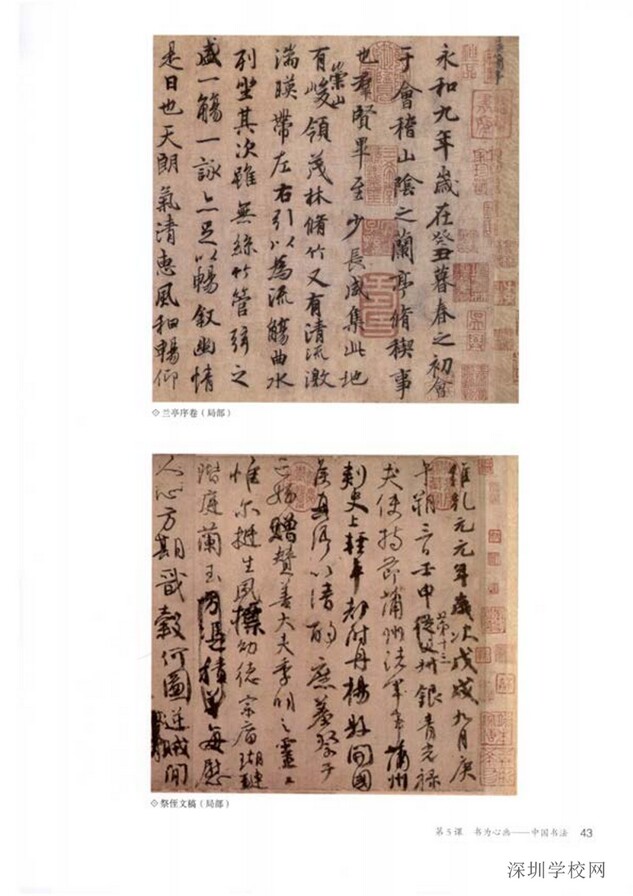 永和九年歲在癸丑暮春之初會
于會稽山陰之蘭亭脩稧事
也羣賢畢至少長咸集此地
有崇山峻領茂林脩竹又有清流激
湍暎帶左右引以為流觴曲水
列坐其次雖無絲竹管弦之
盛一觴一詠亦足以暢敘幽情
是日也天朗氣清惠風和暢仰
◇兰亭序卷（局部）
維乾元元年歲次戊戌九月庚
午朔三日壬申第十三叔銀青光祿
夫使持節蒲州諸軍事蒲州
刺史上輕車都尉丹楊縣開國
侯真卿以清酌庶羞祭于
亡姪贈贊善大夫季明之靈曰
惟爾挺生夙標幼德宗廟瑚璉
階庭蘭玉每慰
人心方期戩穀何圖逆賊間
◇祭侄文稿（局部）
第5课 书为心画——中国书法 43
深圳学校网